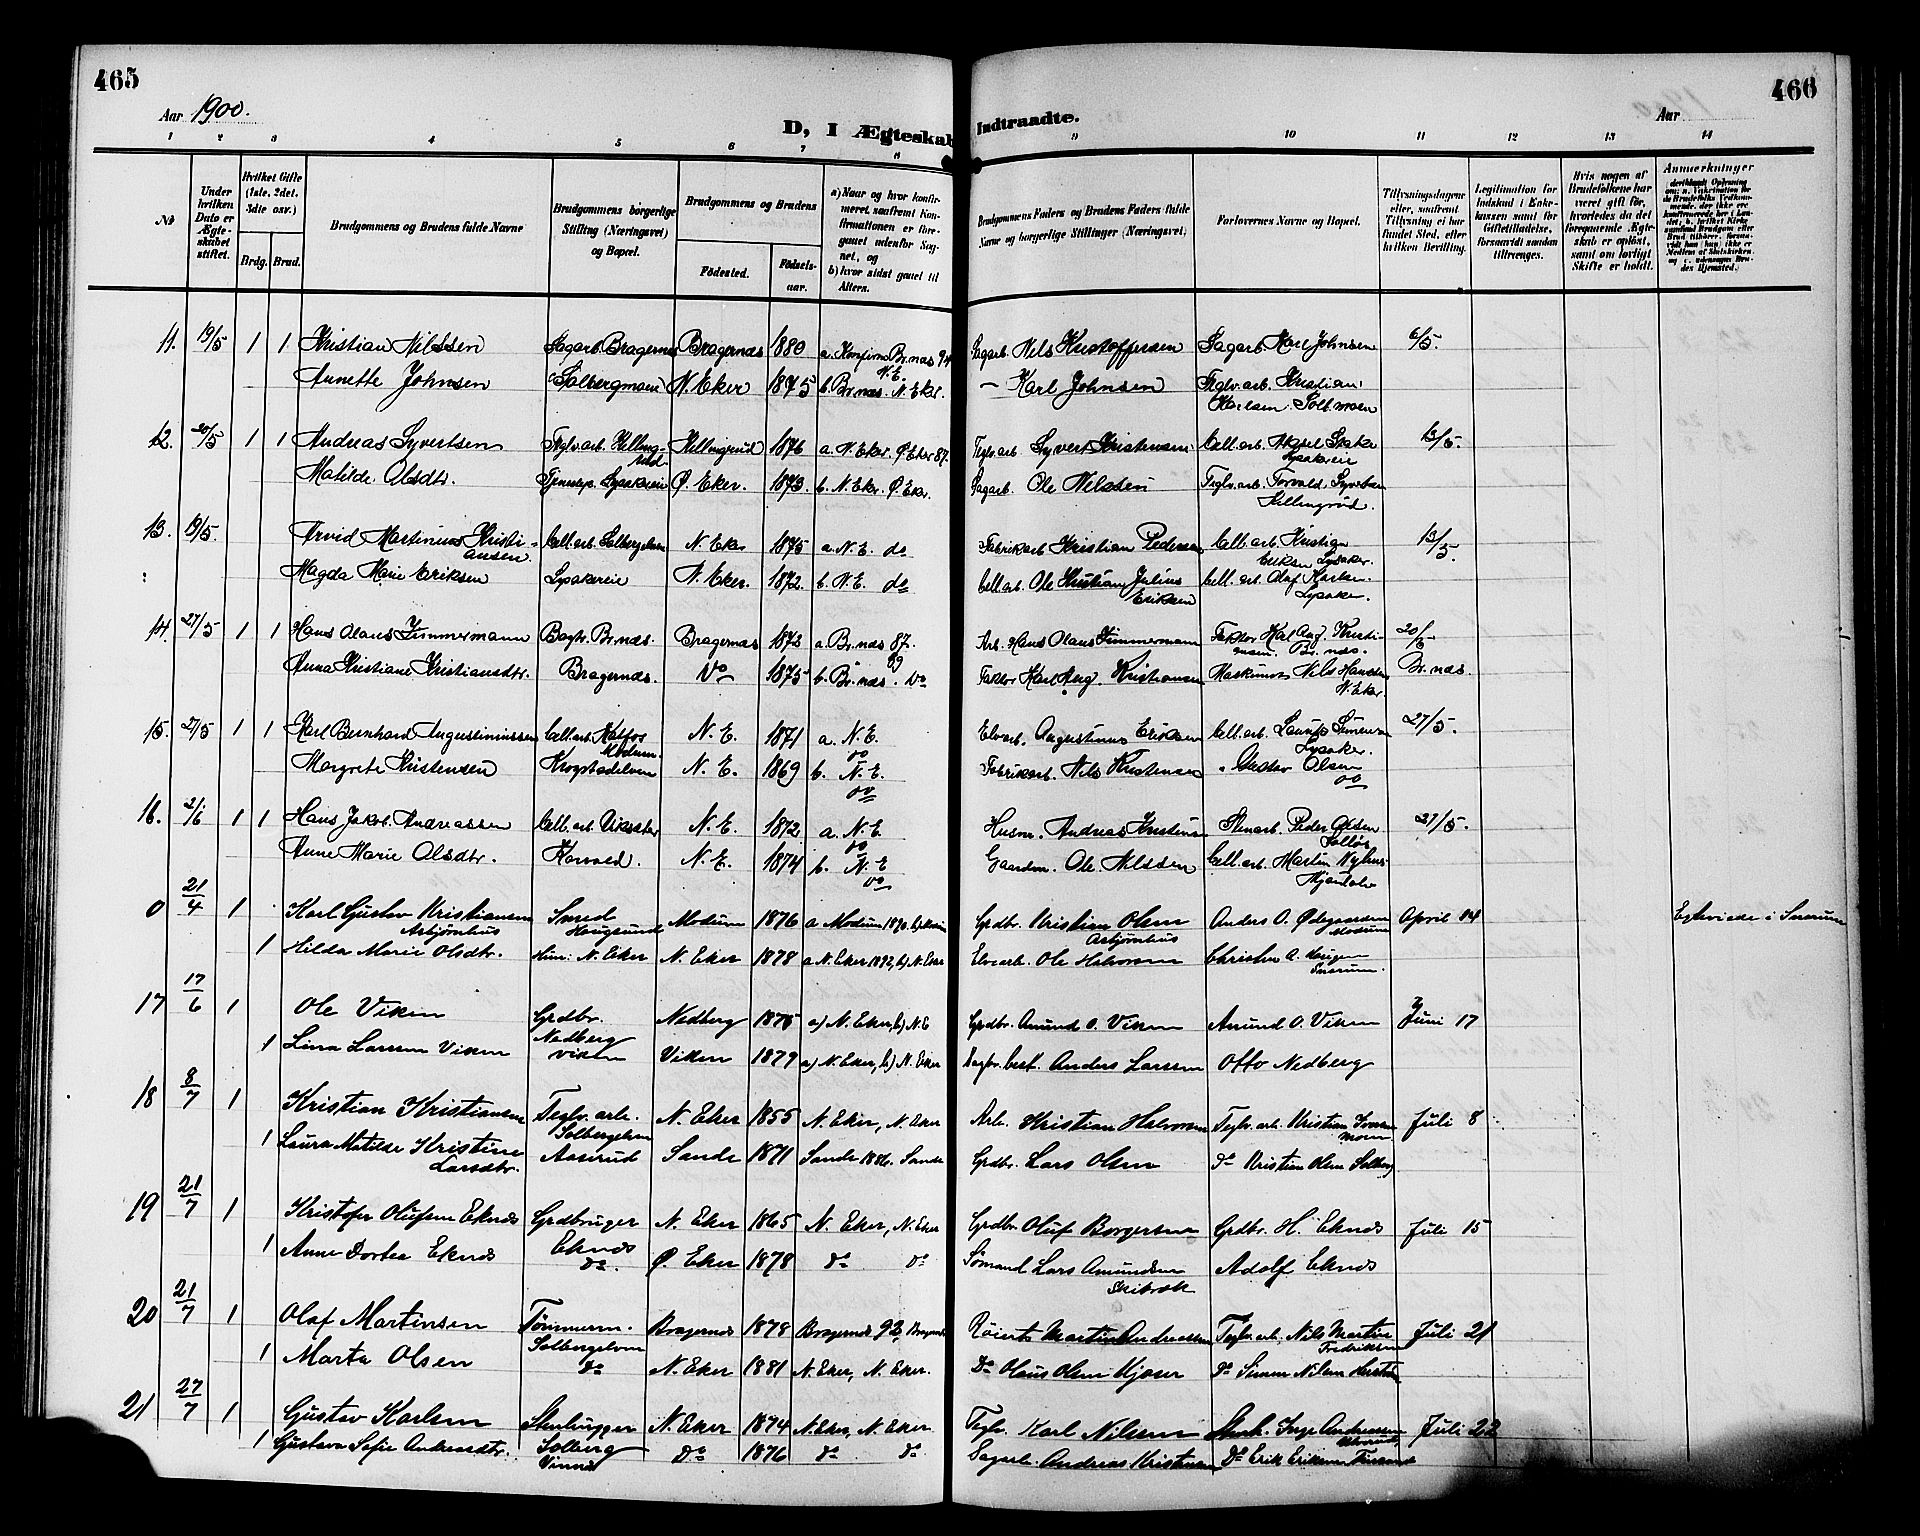 465
Aar 1900.
D, I Ægteskab
1 2 3 4 5 6 7 8
No
Under hvilken Dato er Ægteskabet stiftet.
Hvilket Gifte (1ste, 2det, 3die osv.)
Brdg. Brud.
Brudgommens og Brudens fulde Navne
Brudgommens borgerlige Stilling (Næringsvei) og Bopæl.
Brudgommens og Brudens
Födested. Födselsaar.
a) Naar og hvor konfirmeret saafremt Konfirmationen er foregaaet udenfor Sognet, og
b) hvor sidst gaaet til Alters.
11. 19/5 1 1 Kristian Nilssen Sagarb. Bragernes Bragernæs 1880 a. Konfirm. Br.næs 94 N.E.
Annette Johnsen Solbergmoen N. Eker 1875 b. Br.næs. N. Eker.
12. 20/5 1 1 Andreas Syvertsen Teglv.arb. Killingrud Killingrud 1876 a. N. Eker Ø. Eker 87.
Matilde Olsdtr. Tjenestep. Lysakereie Ø. Eker. 1873. b. N. Eker. Ø. Eker.
13. 19/5. Arvid Martinius Kristiansen Cell.arb. Solbergelven N. Eker 1875 a. N. E. do
Magda Marie Eriksen Lysakereie N. Eker. 1872. b. N. E. do
14. 27/5 1 1 Hans Olaus Zimmermann Br.næs. Bragernæs 1873 a. Br.næs 87.
Anna Kristiane Kristiansdtr. Bragernæs. Do 1875 b. Br.næs. 99 Do
15. 27/5 1 1 Karl Bernhard Augustiniussen Cell.arb. Katfos Modum N. E. 1871 a. N. E. do
Margrete Kristensen Krogstadelven N. E. 1869 b. N. E. do
16. 2/6 1 1 Hans Jakob Andreassen Cell.arb. N. E. 1872 a. N. E. do
Anne Marie Olsdtr. Korsved. N. E. 1874 b. N. E. do
0 21/4 1 Karl Gustav Kristiansen Asbjørnhus Smed Haugsund Modum 1876 a Modum 1890.
1 Hilda Marie Olsdtr. N. Eker N. Eker 1878 a N. Eker 1892, b) N. Eker
17 17/6 1 Ole Viken Grdbr. Nedberg Nedberg 1875 a) N. Eker, b) N. E
1 Lina Larssen Viken Viken Viken 1879 a) N. Eker, b) N. Eker
18 8/7 1 Kristian Kristiansen Teglv. arb. Solbergelven N. Eker 1855 N. Eker, N. Eker
1 Laura Matilde Kristine Larsdtr. Aaserud Sande 1871 Sande 1886. Sande
19 21/7 1 Kristofer Olufsen Eknes Grdbruger Eknes N. Eker 1865 N. Eker, N. Eker
1 Anne Dortea Eknes do. Ø. Eker 1878 do do
20 21/7 1 Olaf Martinsen Tømmerm. Solbergelven Bragernes 1878 Bragernes 92, Bragernes
1 Marta Olsen do N. Eker 1881 N. Eker, N. Eker.
21 27/7 1 Gustav Karlsen Stenhugger Solberg N. Eker 1874 N. Eker, N. Eker.
1 Gustava Sofie Andreasdtr. Vinnes do 1876 do do
466
Aar
Indtraadte.
9 10 11 12 13 14
Brudgommens Faders og Brudens Faders fulde Navne og borgerlige Stillinger (Næringsvei)
Forlovernes Navne og Bopæl.
Tillysningsdagene eller, saafremt Tillysning ei har fundet Sted, efter hvilken Bevilling.
Legitimation for Indskud i Enkekassen samt for Giftetilladelse, forsaavidt saadan tiltrænges.
Hvis nogen af Brudefolkene har været gift för, hvorledes da det foregaaende Ægteskab er oplöst, samt om lovligt Skifte er holdt.
Anmerkninger
Sagarb. Nils Kristoffersen Sagarb. Karl Johnsen 6/5.
— Karl Johnsen Teglv.arb. Kristian Karlsen Solb.moen
Teglv.arb Syvert Kristensen Cell.arb. Aksel Lysakereie 13/5.
Sagarb. Ole Nilssen Teglv.arb. Torvald Syvertsen Killingrud.
Fabrikarb Kristian Pedersen Cell.arb. Kristian Eriksen Lysaker. 13/5.
Cell.arb. Ole Kristian Julius Eriksen Cell.arb. Olaf Karlsen Lysaker.
Arb. Hans Olaus Zimmermann Faktor Karl Aug. Kristiansen. Br.næs. 20/5
Faktor Karl Aug. Kristiansen Maskinist Nils Hansen N. Eker. Br.næs.
Elvarb. Augustinus Eriksen Cell.arb. Lauritz Simensen Lysaker. 27/5.
Fabrikarb. Nils Kristensen " Gustav Olsen do
Husm. Andreas Kristiansen Stenarb. Peder Olsen 27/5.
Gaardm. Ole Nilssen Cell.arb. Martin Nyhus Mjøndalen
Grdbr. Kristian Olsen Asbjørnhus Anders O. Ødegaarden Modum April 14 Egteviede i Snarum
Elvearb. Ole Halvorsen Christen A. Haugen Snarum.
Grdbr. Amund O. Viken Amund O. Viken Juni 17
best. Anders Larssen Otto Nedberg
Arb. Kristian Halvorsen Teglv.arb. Kristian Iversen moen Juli 8
Grdbr. Lars Olsen do Kristian Olsen Solberg
Grdbr. Oluf Borgersen Grdbr. H. Eknes Juli 15
Sømand Lars Amundsen Skibvik Adolf Eknes
Martin Andreassen Teglv.arb. Nils Martin Fredriksen Juli 21
do Olaus Olsen Mjøser do Simen Nilsen
Teglv. Karl Nilssen Stenh. Inge Andreassen Juli 22
Sagarb. Andreas Kristiansen do Erik Eriksen